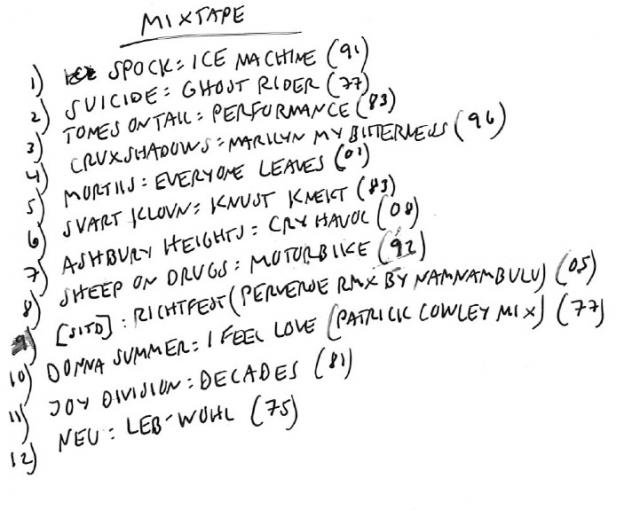 MIXTAPE
1) SPOCK: ICE MACHINE (91)
2) SUICIDE: GHOST RIDER (77)
3) TONES ON TAIL: PERFORMANCE (83)
4) CRUXSHADOWS: MARILYN MY BITTERNESS (96)
5) MORTIIS: EVERYONE LEAVES (01)
6) SVART KLOVN: KNUST KNEKT (83)
7) ASHBURY HEIGHTS: CRY HAVOC (08)
8) SHEEP ON DRUGS: MOTORBIKE (92)
9) [SITD]: RICHTFEST (PERVERSE RMX BY NAMNAMBULU) (05)
10) DONNA SUMMER: I FEEL LOVE (PATRICK COWLEY MIX) (77)
11) JOY DIVISION: DECADES (81)
12) NEU: LEB-WOHL (75)